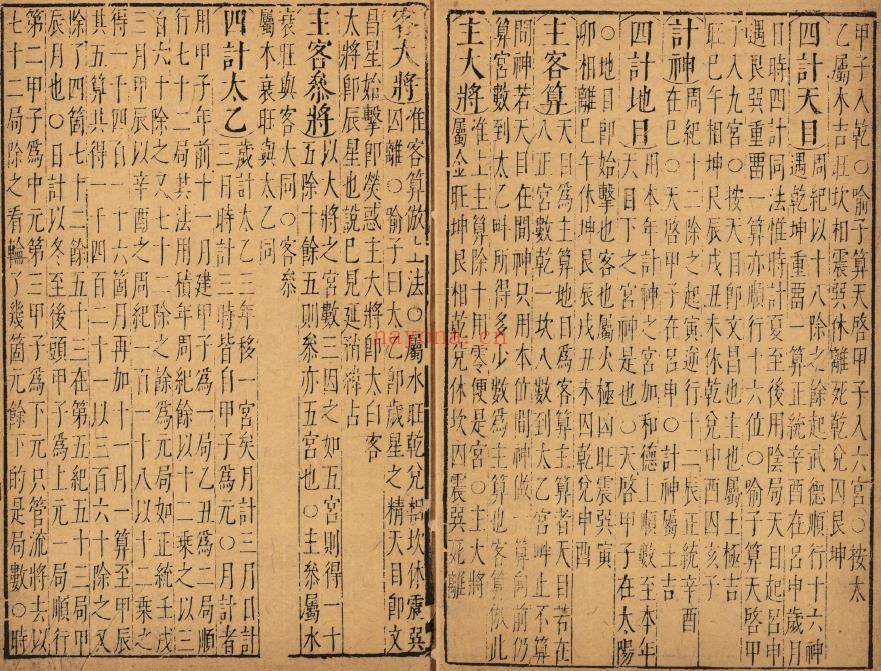 甲子入乾○喻子算天啓甲子入六宮○按太
乙屬木吉旺坎相震巽休離死乾兌囚艮坤
四計天目
周紀以十八除之餘起武德順行十六神
遇乾坤重畱一算正統辛酉在呂申歲月
日時四計同法惟時計夏至後用陰局天目起呂申
遇艮巽重畱一算亦順行十六位○喻子算天啓甲
子入九宮○按天目卽文昌也主也屬土極吉
旺巳午相坤艮辰戌丑未休乾兌申酉囚亥子
計神
周紀十二除之起寅逆行十二辰正統辛酉
在巳○天啓甲子在呂申○計神屬土吉
四計地目
用本年計神之宮加和德上順數至本年
天目下之宮神是也○天啓甲子在太陽
○地目卽始擊也客也屬火極凶旺震巽寅
卯相離巳午休坤艮辰戌丑未囚乾兌申酉
主客算
天目爲主算地目爲客算主算者天目若在
八正宮數乾一坎八數到太乙宮畔止不算
間神若天目在間神只用本位間神做一算向前仍
算宮數到太乙畔所得多少數爲主算也客算倣此
主大將
准上主算除十用零便是宮○主大將
屬金旺坤艮相乾兌休坎囚震巽死離
客大將
准客算倣上法○屬水旺乾兌相坎休震巽
囚離○喻子曰太乙卽歲星之精天目卽文
昌星始擊卽熒惑主大將卽太白客
太將卽辰星也說已見延祐緯占
主客參將
以大將之宮數三因之如五宮則得一十
五除十餘五則參亦五宮也○主參屬水
衰旺與客大同○客參
屬木衰旺與太乙同
四計太乙
歲計太乙三年移一宮矣月計三月日計
三日時計三時皆自甲子爲元○月計者
用甲子年前十一月建甲子爲一局乙丑爲二局順
行七十二局其法用積年周紀餘以十二乘之以三
百六十除之又七十二除之餘爲元局如正統壬戌
三月甲辰以辛酉之周紀一百一十八以十二乘之
得一千四百一十六箇月再加十一月一算至甲辰
其五算共得一千四百二十一以三百六十除之又
除了四箇七十二餘五十三在第五紀五十三局甲
辰月也○日計以冬至後頭甲子爲上元一局順行
第二甲子爲中元第三甲子爲下元只管流將去以
七十二局除之看輪了幾箇元餘下的是局數○時
nayona.cn